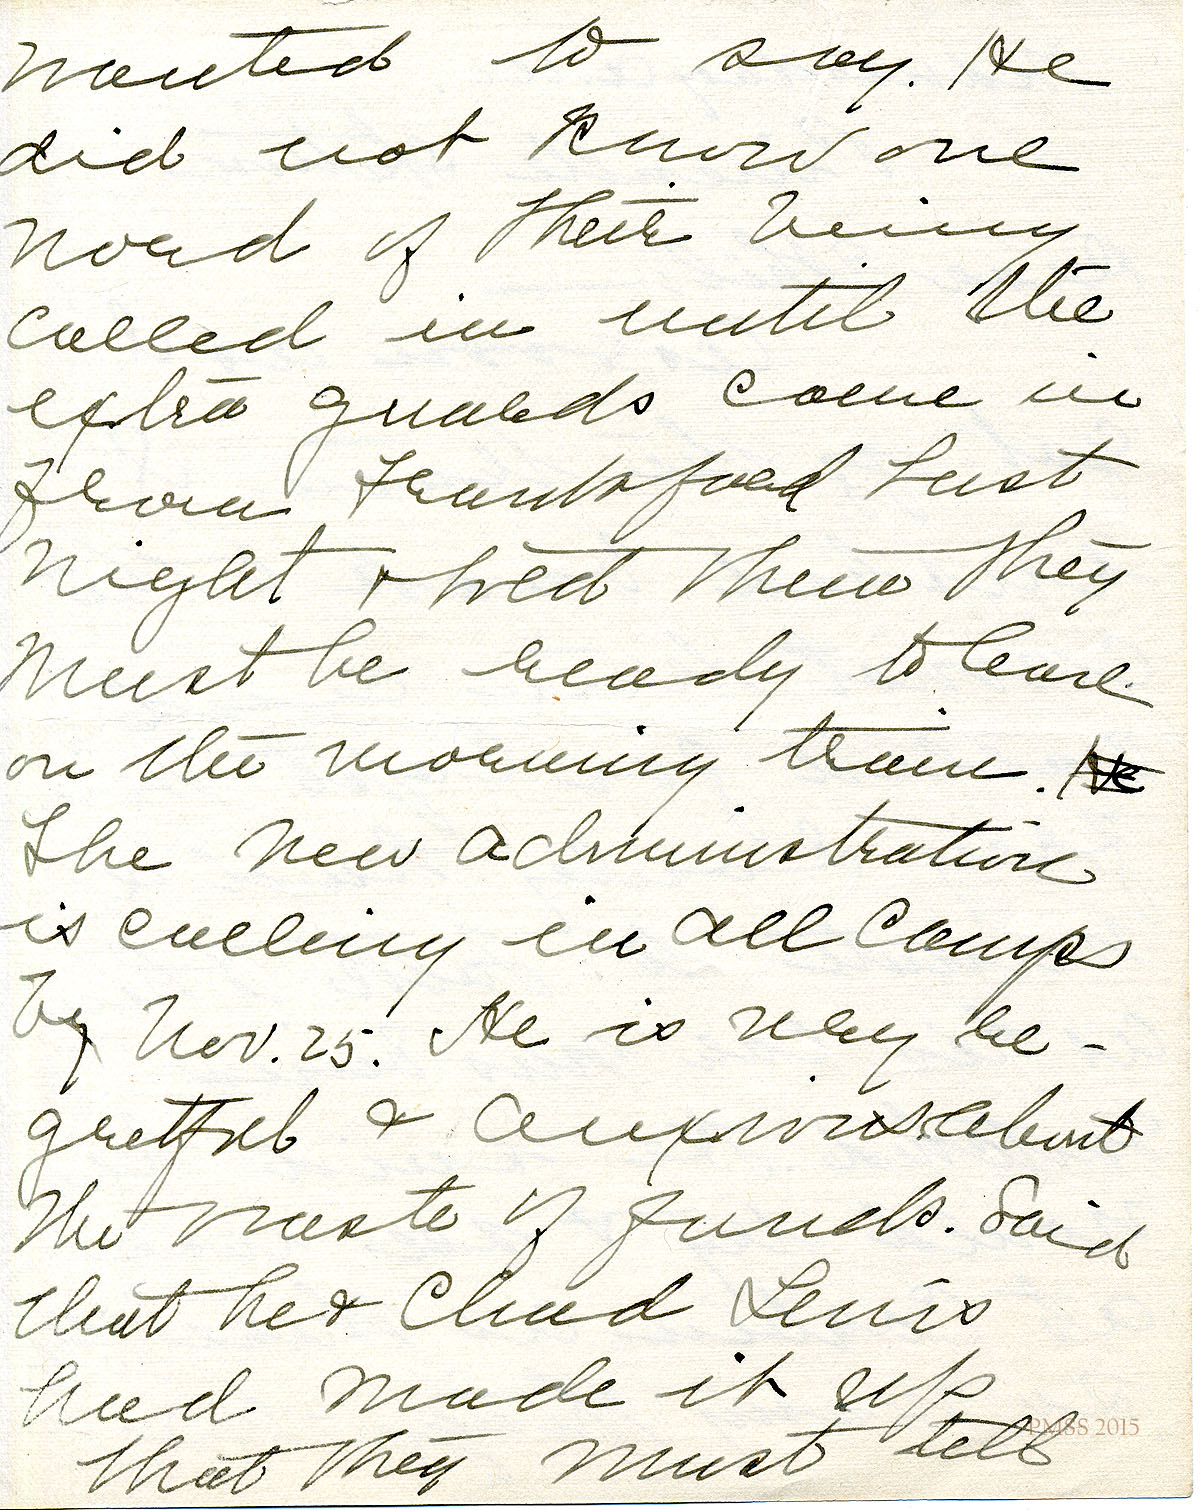 wanted to say. He
did not know one
word of their being
called in until the
extra guards come in
from Frankford last
night & tied them they
must be ready to leave
on the morning train. He
The new administration
is calling in all camps
by Nov. 25. He is very re-
gretful & anxious about
the waste of funds. Said
that he & Chad Lewis
had made it up
PMSS 2015
that they must tell